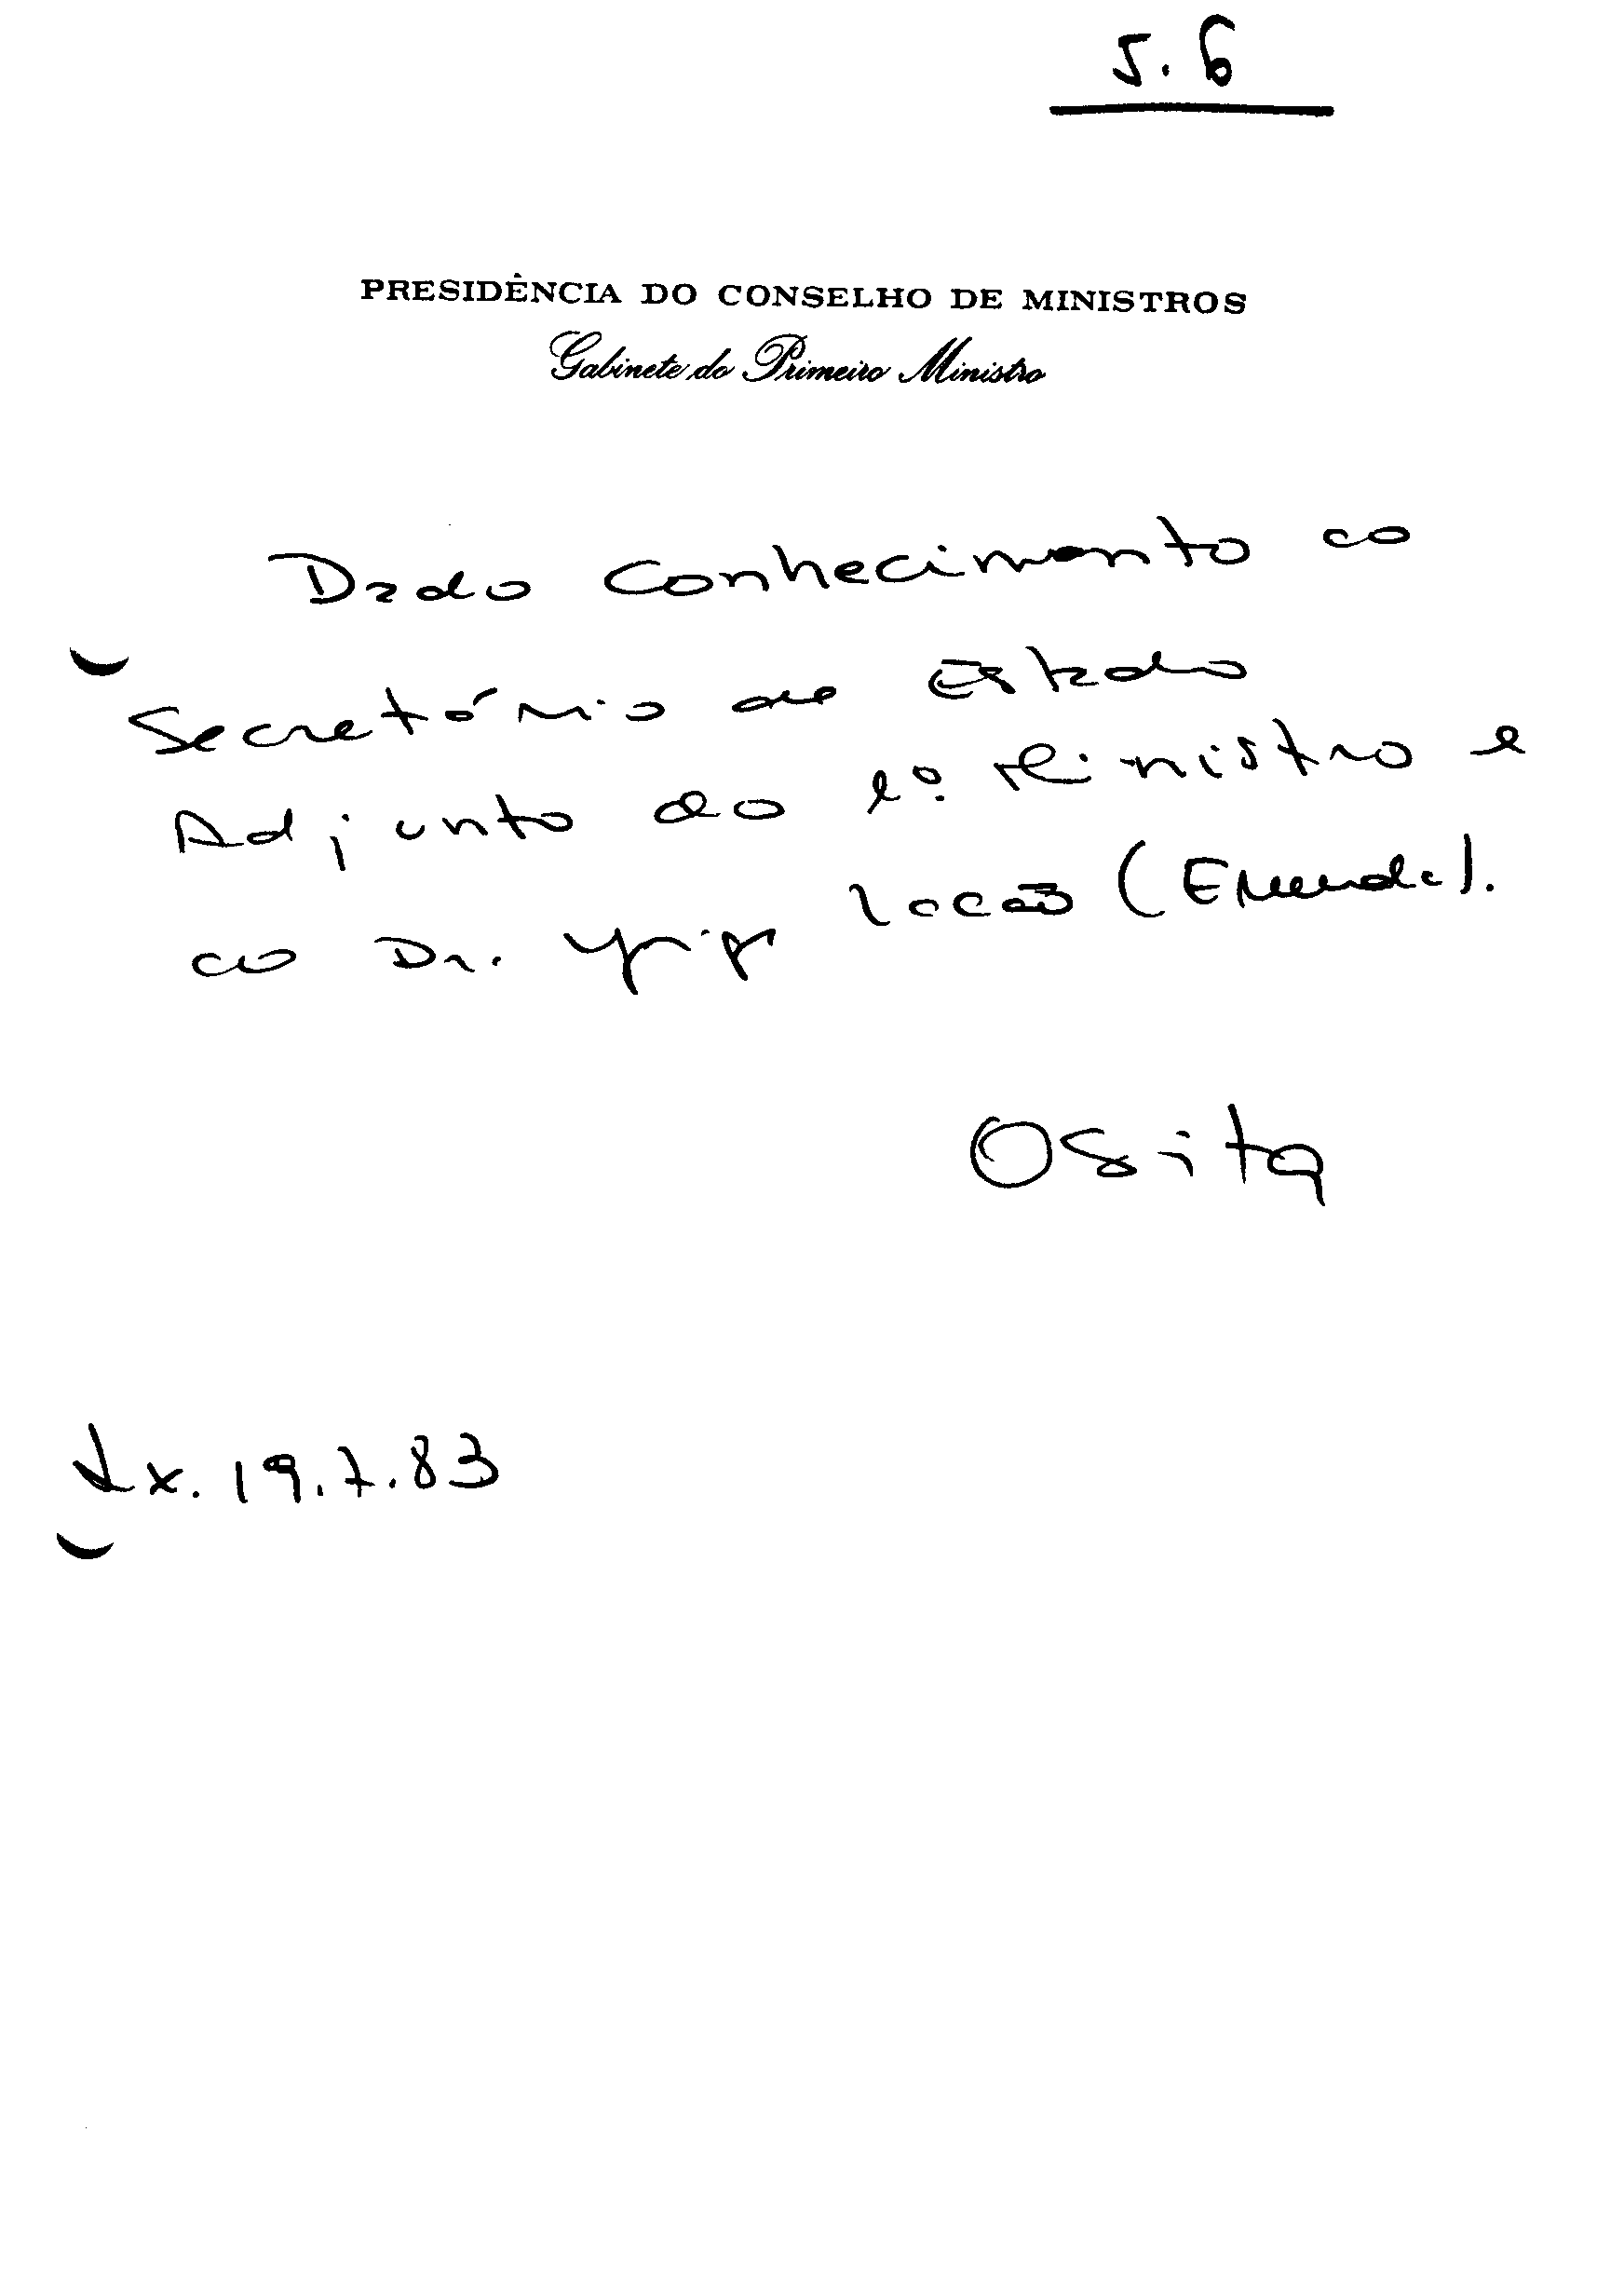 5.6
PRESIDÊNCIA DO CONSELHO DE MINISTROS
Gabinete do Primeiro Ministro
Dado conhecimento ao
Secretário de Estado
Adjunto do 1º Ministro e
ao Dr.
Osita
Lx. 19.7.83